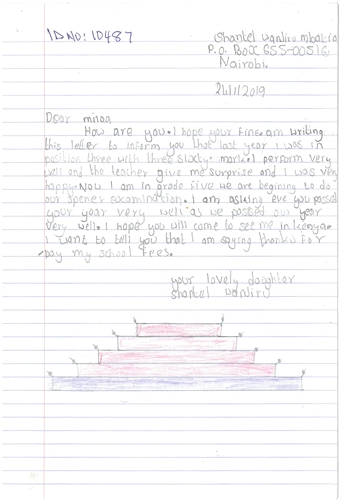 ID NO: 10487
Shantel wanjiru mbatia
P.O. BOX 655-00516
Nairobi.
21/1/2019
Dear minaa
How are you. I hope your fine. am writing
this letter to inform you that last year I was in
position three with three sixty. mark. I perform very
well and the teacher give me surprise and I was very
happy. Now I am in grade five we are begining to do
our opener examination. I am asking eve you passed
your year very well as we passed our year
very well. I hope you will come to see me in kenya.
I want to tell you that I am saying thanks for
pay my school fees.
your lovely daughter
shantel wanjiru